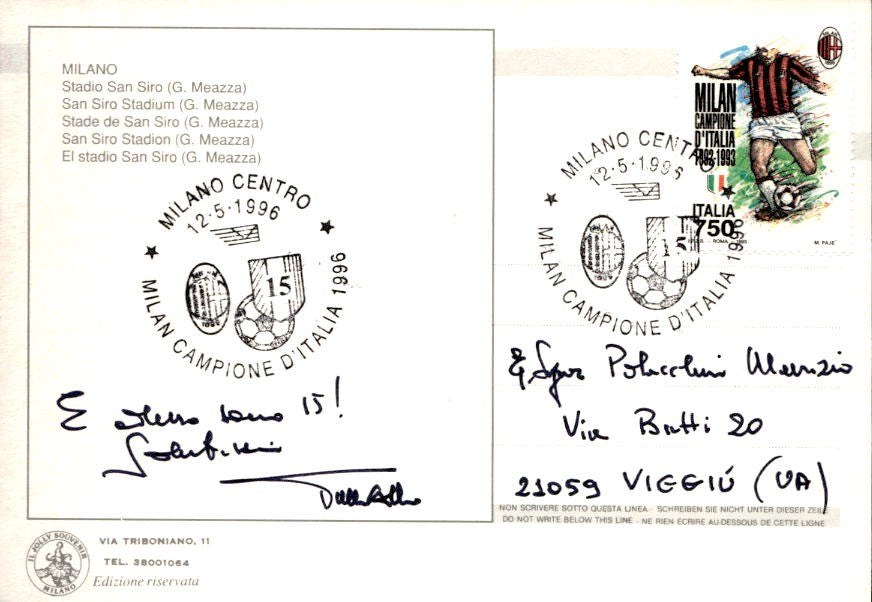 MILANO
Stadio San Siro (G. Meazza)
San Siro Stadium (G. Meazza)
Stade de San Siro (G. Meazza)
San Siro Stadion (G. Meazza)
El stadio San Siro (G. Meazza)
MILANO CENTRO
12-5-1996
15
1899
MILAN CAMPIONE D'ITALIA 1996
E adesso sono 15!
MILAN
CAMPIONE
D'ITALIA
1992-1993
ITALIA
750
M. PAJE'
MILANO CENTRO
12-5-1996
15
MILAN CAMPIONE D'ITALIA 1996
Maurizio
Via Butti 20
21059 VIGGIÚ (VA)
NON SCRIVERE SOTTO QUESTA LINEA - SCHREIBEN SIE NICHT UNTER DIESER ZEILE
DO NOT WRITE BELOW THIS LINE - NE RIEN ÉCRIRE AU-DESSOUS DE CETTE LIGNE
IL JOLLY SOUVENIR
MILANO
VIA TRIBONIANO, 11
TEL. 38001064
Edizione riservata